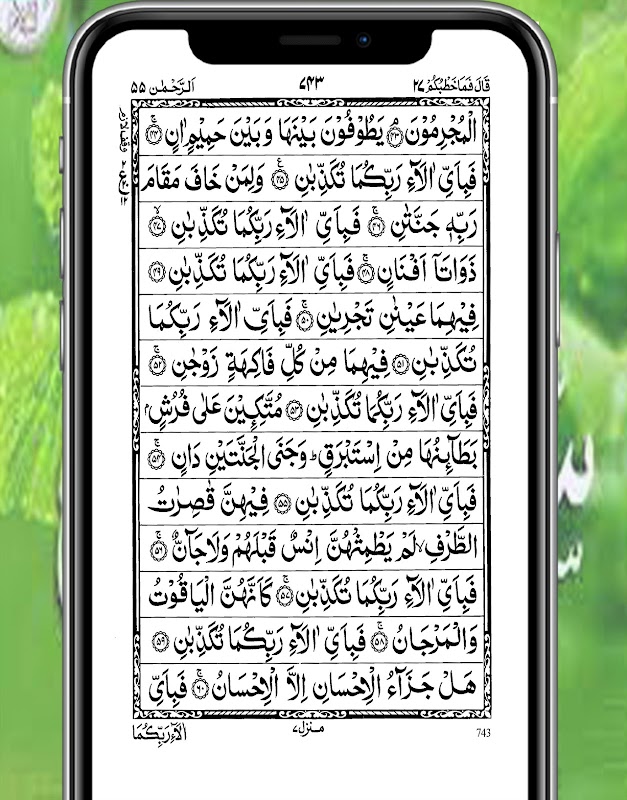 قَالَ فَمَا خَطْبُكُمْ ۲۷ ۷۴۳ اَلرَّحْمٰن ۵۵
الْمُجْرِمُوْنَ ﴿۴۳﴾ يَطُوْفُوْنَ بَيْنَهَا وَبَيْنَ حَمِيْمٍ اٰنٍ ﴿۴۴﴾
فَبِاَيِّ اٰلَآءِ رَبِّكُمَا تُكَذِّبٰنِ ﴿۴۵﴾ وَلِمَنْ خَافَ مَقَامَ
رَبِّهٖ جَنَّتٰنِ ﴿۴۶﴾ فَبِاَيِّ اٰلَآءِ رَبِّكُمَا تُكَذِّبٰنِ ﴿۴۷﴾
ذَوَاتَاۤ اَفْنَانٍ ﴿۴۸﴾ فَبِاَيِّ اٰلَآءِ رَبِّكُمَا تُكَذِّبٰنِ ﴿۴۹﴾
فِيْهِمَا عَيْنٰنِ تَجْرِيٰنِ ﴿۵۰﴾ فَبِاَيِّ اٰلَآءِ رَبِّكُمَا
تُكَذِّبٰنِ ﴿۵۱﴾ فِيْهِمَا مِنْ كُلِّ فَاكِهَةٍ زَوْجٰنِ ﴿۵۲﴾
فَبِاَيِّ اٰلَآءِ رَبِّكُمَا تُكَذِّبٰنِ ﴿۵۳﴾ مُتَّكِـِٕيْنَ عَلٰى فُرُشٍۭ
بَطَآىِٕنُهَا مِنْ اِسْتَبْرَقٍ ؕ وَجَنَى الْجَنَّتَيْنِ دَانٍ ﴿۵۴﴾
فَبِاَيِّ اٰلَآءِ رَبِّكُمَا تُكَذِّبٰنِ ﴿۵۵﴾ فِيْهِنَّ قٰصِرٰتُ
الطَّرْفِ ۙ لَمْ يَطْمِثْهُنَّ اِنْسٌ قَبْلَهُمْ وَلَا جَآنٌّ ﴿۵۶﴾
فَبِاَيِّ اٰلَآءِ رَبِّكُمَا تُكَذِّبٰنِ ﴿۵۷﴾ كَاَنَّهُنَّ الْيَاقُوْتُ
وَالْمَرْجَانُ ﴿۵۸﴾ فَبِاَيِّ اٰلَآءِ رَبِّكُمَا تُكَذِّبٰنِ ﴿۵۹﴾
هَلْ جَزَآءُ الْاِحْسَانِ اِلَّا الْاِحْسَانُ ﴿۶۰﴾ فَبِاَيِّ
اٰلَآءِ رَبِّكُمَا منزل ۷ 743